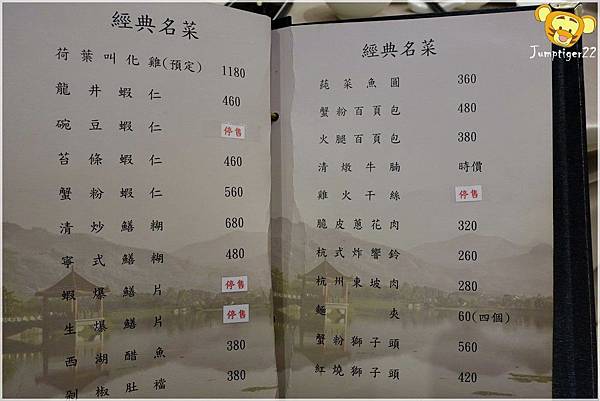 經典名菜
荷葉叫化雞(預定) 1180
龍井蝦仁 460
碗豆蝦仁 停售
苔條蝦仁 460
蟹粉蝦仁 560
清炒鱔糊 680
寧式鱔糊 480
蝦爆鱔片 停售
生爆鱔片 停售
西湖醋魚 380
剁椒肚襠 380
經典名菜
莼菜魚圓 360
蟹粉百頁包 480
火腿百頁包 380
清燉牛腩 時價
雞火干絲 停售
脆皮蔥花肉 320
杭式炸響鈴 260
杭州東坡肉 280
麵夾 60(四個)
蟹粉獅子頭 560
紅燒獅子頭 420
Jumptiger22